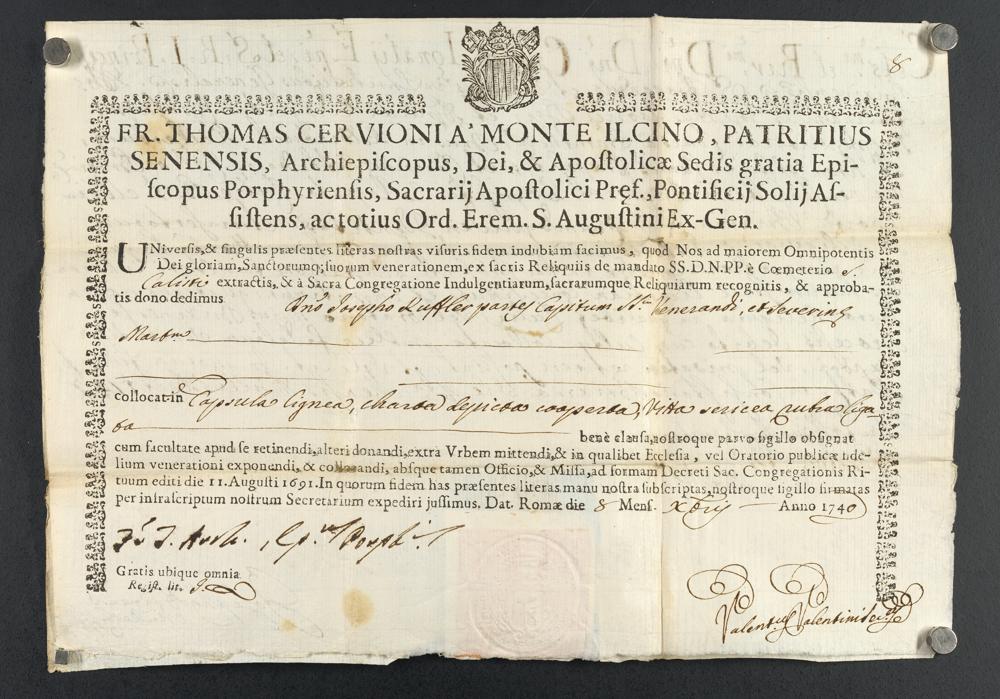 8
FR. THOMAS CERVIONI A' MONTE ILCINO, PATRITIUS
SENENSIS, Archiepiſcopus, Dei, & Apoſtolicæ Sedis gratia Epi-
ſcopus Porphyrienſis, Sacrarij Apoſtolici Pręf., Pontificij Solij Aſ-
ſiſtens, ac totius Ord. Erem. S. Auguſtini Ex-Gen.
UNiverſis, & ſingulis præſentes literas noſtras viſuris fidem indubiam facimus, quod Nos ad maiorem Omnipotentis
Dei gloriam, Sanctorumq; ſuorum venerationem, ex ſacris Reliquiis de mandato SS. D. N. PP. è Cœmeterio S.
Calisti extractis, & à Sacra Congregatione Indulgentiarum, ſacrarumque Reliquiarum recognitis, & approba-
tis dono dedimus Dno Josepho Kuffler partes Capitum Ss. Venerandi, et Severini
Martm
collocat in Capsula lignea, charta depicta cooperta, Vitta sericea rubra liga-
ta benè clauſa, noſtroque parvo ſigillo obſignat
cum facultate apud ſe retinendi, alteri donandi, extra Urbem mittendi, & in qualibet Eccleſia, vel Oratorio publicæ fide-
lium venerationi exponendi, & collocandi, absque tamen Officio, & Miſſa, ad formam Decreti Sac. Congregationis Ri-
tuum editi die 11. Auguſti 1691. In quorum fidem has præſentes literas manu noſtra ſubſcriptas, noſtroque ſigillo firmatas
per infraſcriptum noſtrum Secretarium expediri juſſimus. Dat. Romæ die 8 Menſ. Xbris Anno 1740
Gratis ubique omnia
Regiſt. lit.
Valentinus Valentini